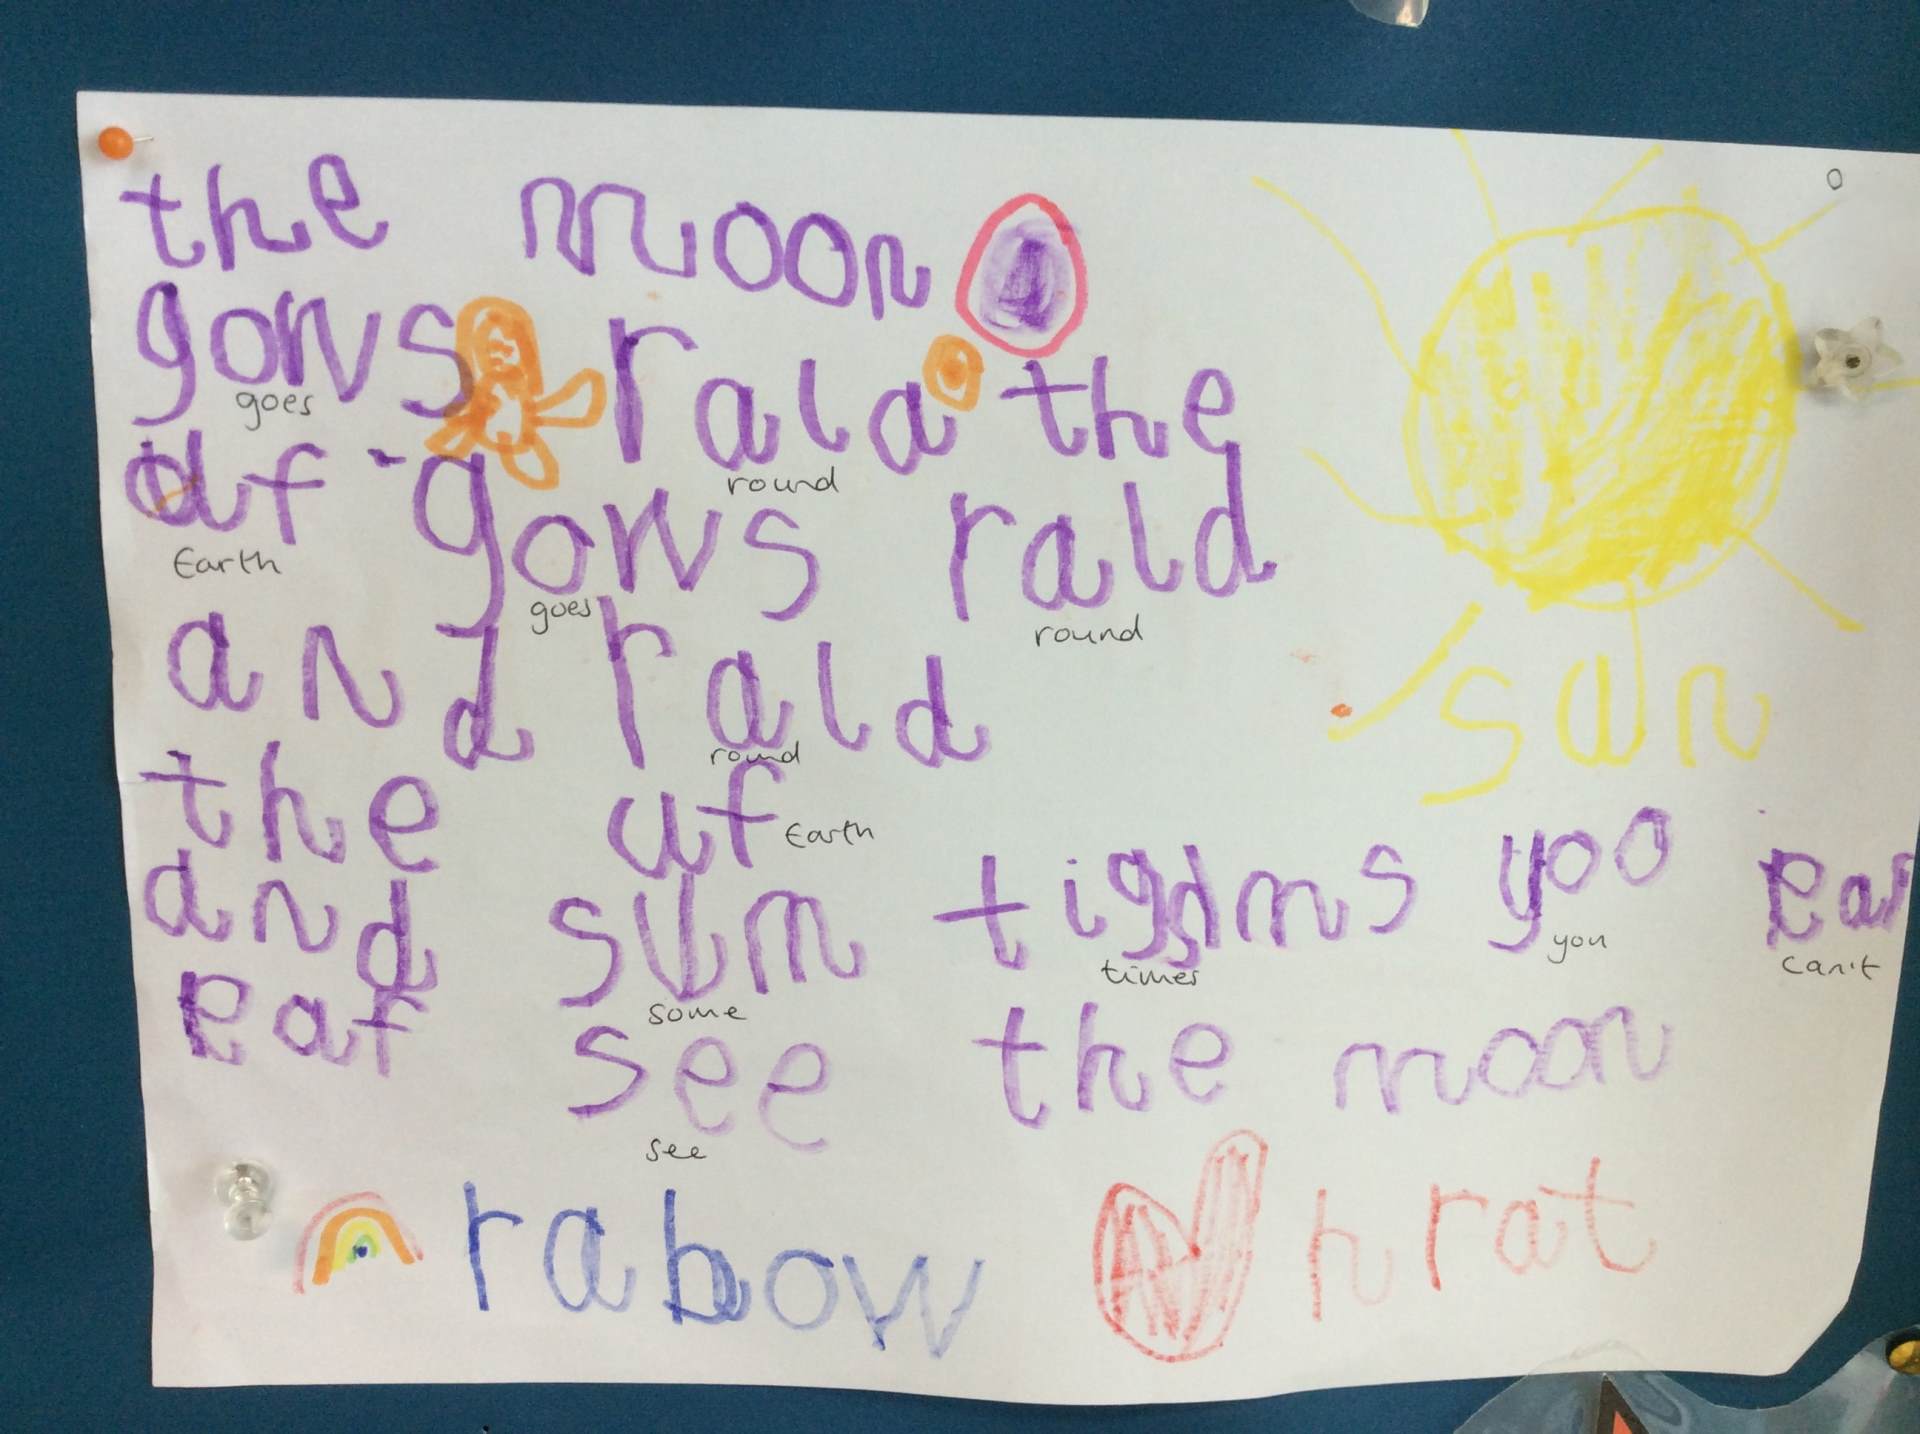 the moon
gows rald the
goes round
uf gows rald
Earth goes round
and rald
round
the uf
Earth
and sum tigms you
some times you can't
see the moon
see
sun
rabow hrat